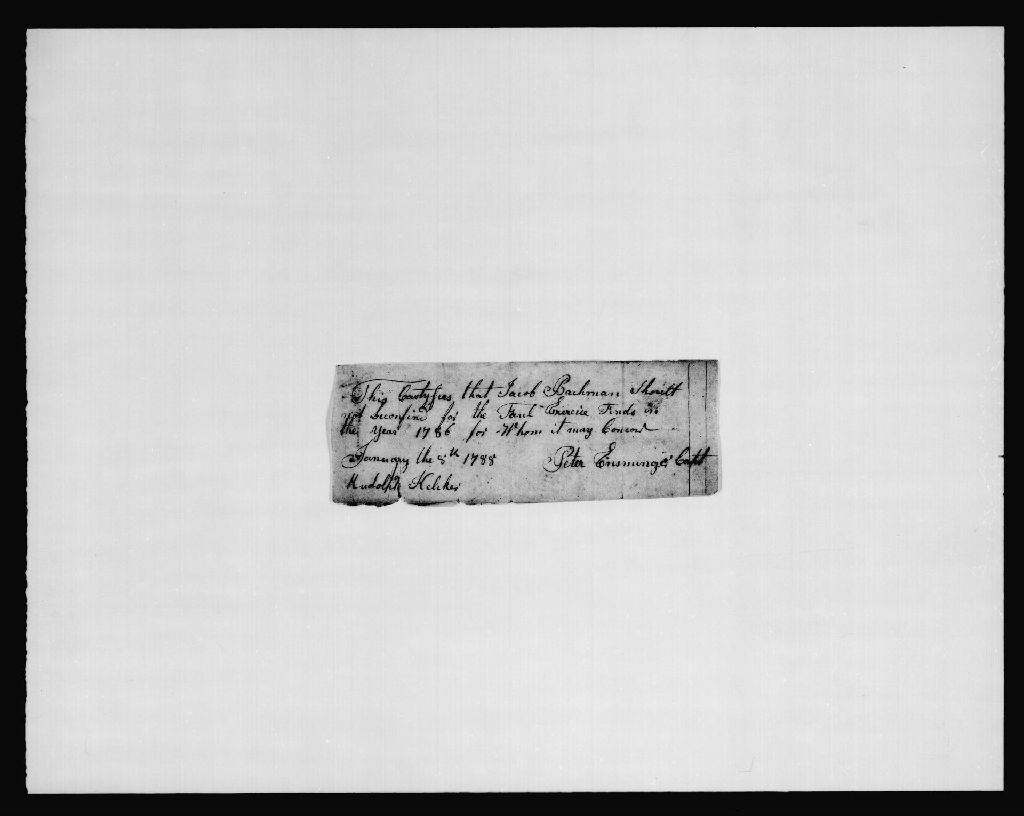 This Certyfies that Jacob Bachman Should
not be confind for the Exercise Finds in
the Year 1786 for Whom it may Concern
January the 8th 1788 Peter Ensminger Capt
Rudolph